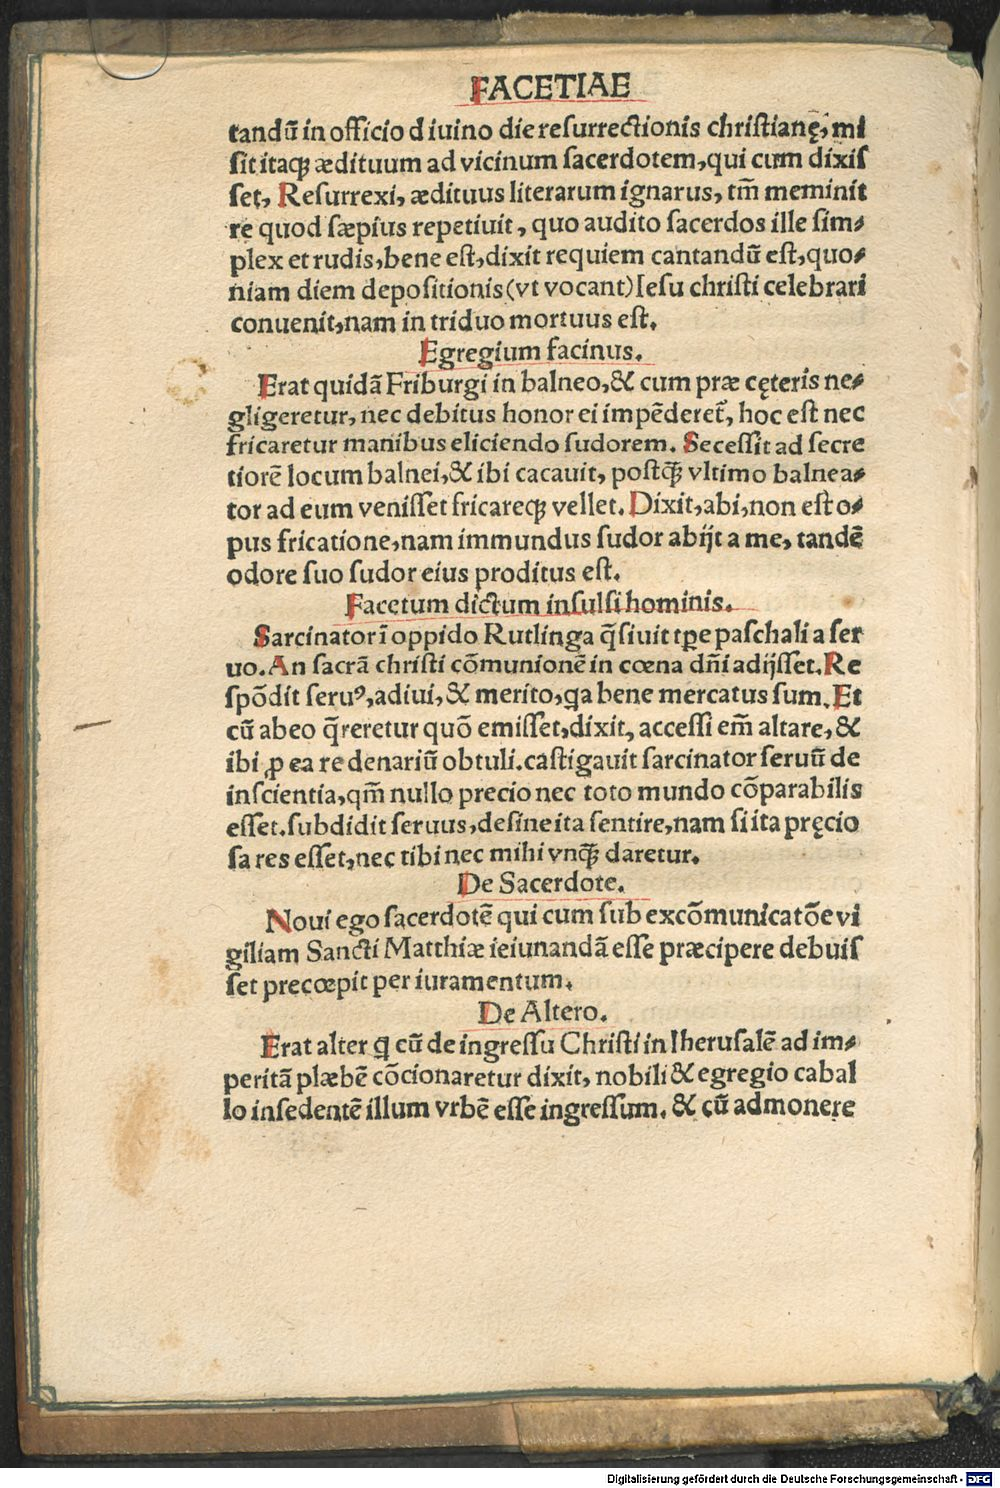 FACETIAE
tandū in officio diuino die resurrectionis christianę, mi
sit itaqꝫ ædituum ad vicinum sacerdotem, qui cum dixis
set, Resurrexi, ædituus literarum ignarus, tm̄ meminit
re quod sæpius repetiuit, quo audito sacerdos ille sim⸗
plex et rudis, bene est, dixit requiem cantandū est, quo⸗
niam diem depositionis (vt vocant) Iesu christi celebrari
conuenit, nam in triduo mortuus est.
Egregium facinus.
Erat quidā Friburgi in balneo, & cum præ cęteris ne⸗
gligeretur, nec debitus honor ei impēderet̃, hoc est nec
fricaretur manibus eliciendo sudorem. Secessit ad secre
tiorē locum balnei, & ibi cacauit, postqꝫ̃ vltimo balnea⸗
tor ad eum venisset fricareqꝫ vellet. Dixit, abi, non est o⸗
pus fricatione, nam immundus sudor abijt a me, tandē
odore suo sudor eius proditus est.
Facetum dictum insulsi hominis.
Sarcinator ī oppido Rutlinga q̄siuit tꝑe paschali a ser
uo. An sacrā christi cōmunionē in cœna dn̄i adijsset. Re
spōdit seruꝰ, adiui, & merito, qa bene mercatus sum. Et
cū ab eo q̄reretur quō emisset, dixit, accessi em̄ altare, &
ibi ꝓ ea re denariū obtuli. castigauit sarcinator seruū de
inscientia, qm̄ nullo precio nec toto mundo cōparabilis
esset. subdidit seruus, desine ita sentire, nam si ita pręcio
sa res esset, nec tibi nec mihi vnqꝫ̃ daretur.
De Sacerdote.
Noui ego sacerdotē qui cum sub excōmunicatōe vi
giliam Sancti Matthiæ ieiunandā esse præcipere debuis
set precœpit per iuramentum.
De Altero.
Erat alter q cū de ingressu Christi in Iherusalē ad im⸗
peritā plæbē cōcionaretur dixit, nobili & egregio cabal
lo insedentē illum vrbē esse ingressum. & cū admonere
Digitalisierung gefördert durch die Deutsche Forschungsgemeinschaft - DFG